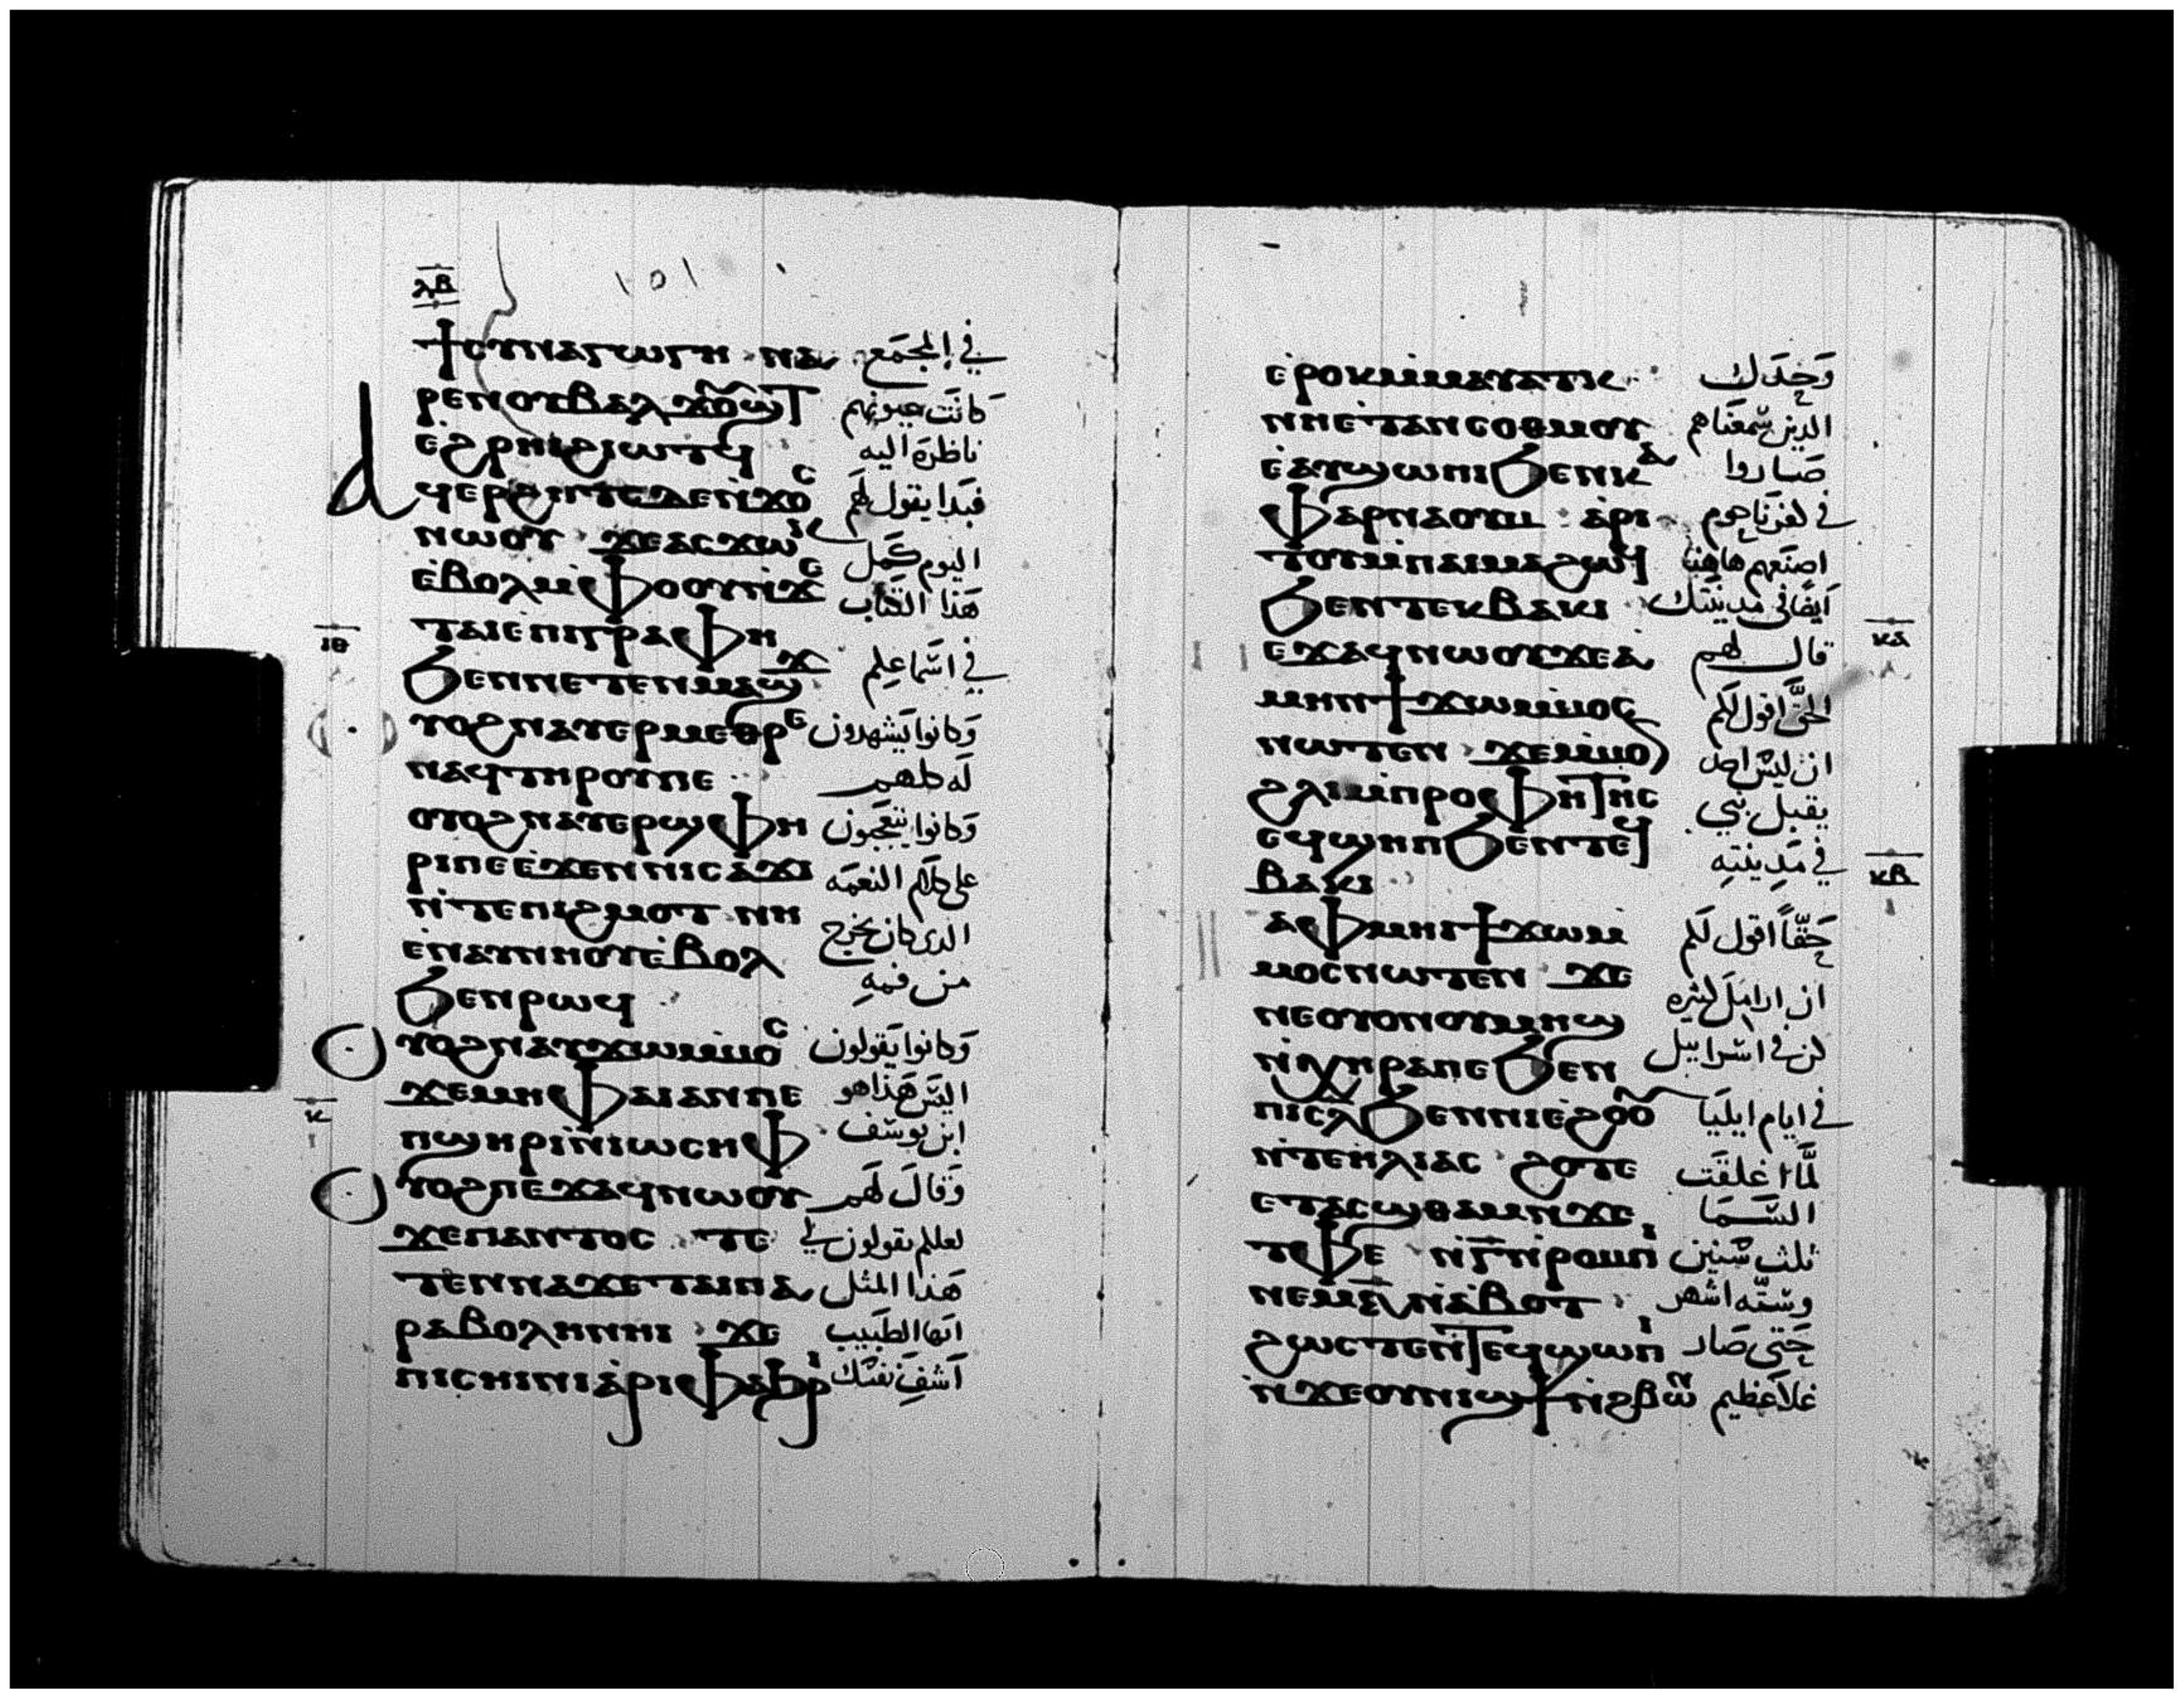 ⲗⲃ
١٥١
ϯⲥⲩⲛⲁⲅⲱⲅⲏ ⲛⲁ في المجمع
ⲣⲉⲛⲟⲩⲃⲁⲗ ϫⲟⲩϣⲧ كانت عيونهم
ⲉϩⲣⲏⲓϩⲓⲱⲧϥ ناظرة اليه
ⲁϥⲉⲣϩⲏⲧⲥⲇⲉⲛ̀ϫⲟⲥ فبدا يقول لهم
ⲛⲱⲟⲩ ϫⲉⲁⲥϫⲱⲕ اليوم كمل
ⲉ̀ⲃⲟⲗⲙ̀ⲫⲟⲟⲩⲛ̀ϫⲉ هذا الكتاب
ⲧⲁⲓⲉⲡⲓⲅⲣⲁⲫⲏ
ⲓⲑ
ϧⲉⲛⲛⲉⲧⲉⲛⲙⲁϣϫ في اسماعكم
ⲟⲩⲟϩⲛⲁⲩⲉⲣⲙⲉⲑⲣⲉ وكانوا يشهدون
ⲛⲁϥⲧⲏⲣⲟⲩⲡⲉ له كلهم
ⲟⲩⲟϩⲛⲁⲩⲉⲣϣⲫⲏ وكانوا يتعجبون
ⲣⲓⲡⲉⲉ̀ϫⲉⲛⲛⲓⲥⲁϫⲓ على كلام النعمه
ⲛ̀ⲧⲉⲡⲓϩⲙⲟⲧ ⲛⲏ الدى كان يخرج
ⲉⲛⲁⲩⲛⲏⲟⲩⲉ̀ⲃⲟⲗ من فمه
ϧⲉⲛⲣⲱϥ
ⲟⲩⲟϩⲛⲁⲩϫⲱⲙ̀ⲙⲟⲥ وكانوا يقولون
ϫⲉⲙⲏⲫⲁⲓⲁⲛⲡⲉ اليس هذا هو
ⲕ
ⲡϣⲏⲣⲓⲛ̀ⲓⲱⲥⲏⲫ ابن يوسف
ⲟⲩⲟϩⲡⲉϫⲁϥⲛⲱⲟⲩ وقال لهم
ϫⲉⲡⲁⲛⲧⲟⲥ ⲧⲉ لعلكم تقولون لي
ⲧⲉⲛⲛⲁϫⲉⲧⲁⲓⲡⲁ هذا المثل
ⲣⲁⲃⲟⲗⲏⲛⲏⲓ ϫⲉ ايها الطبيب
ⲡⲓⲥⲏⲓⲛⲓⲁ̀ⲣⲓⲫⲁϧⲣⲓ اشف نفسك
ⲉ̀ⲣⲟⲕⲙ̀ⲙⲁⲩⲁⲧⲕ وحدك
ⲛⲏⲉ̀ⲧⲁⲛⲥⲟⲑⲙⲟⲩ الدين سمعناهم
ⲉ̀ⲁⲩϣⲱⲡⲓϧⲉⲛⲕⲁ صاروا
ⲫⲁⲣⲛⲁⲟⲩⲙ ⲁⲣⲓ في كفرناحوم
ⲧⲟⲩⲙ̀ⲡⲁⲓⲙⲁϩⲱϥ اصنعهم هاهنا
ϧⲉⲛⲧⲉⲕⲃⲁⲕⲓ ايضا في مدينتك
ⲕⲁ
ⲡⲉϫⲁϥⲛⲱⲟⲩϫⲉⲁ قال لهم
ⲙⲏⲛϯϫⲱⲙ̀ⲙⲟⲥ الحق اقول لكم
ⲛⲱⲧⲉⲛ ϫⲉⲙ̀ⲙⲟⲛ ان ليس احد
ϩⲗⲓⲙ̀ⲡⲣⲟⲫⲏⲧⲏⲥ يقبل نبي
ⲉϥϣⲏⲡϧⲉⲛⲧⲉϥ في مدينته
ⲕⲃ
ⲃⲁⲕⲓ
ⲧⲁⲫⲙⲏⲓϯϫⲱⲙ حقا اقول لكم
ⲙⲟⲥⲛⲱⲧⲉⲛ ϫⲉ
ⲛⲉⲟⲩⲟⲛⲟⲩⲙⲏϣ ان ارامل كثيره
ⲛ̀ⲭⲏⲣⲁⲡⲉϧⲉⲛ كن في اسراييل
ⲡⲓⲥⲗϧⲉⲛⲛⲓⲉϩⲟⲟⲩ في ايام ايليا
ⲛ̀ⲧⲉⲏⲗⲓⲁⲥ ϩⲟⲧⲉ لما اغلقت
ⲉⲧⲁⲥϣⲑⲁⲙⲛ̀ϫⲉ السما
ⲧⲫⲉ ⲛ̀ⲅⲛ̀ⲣⲟⲙⲡⲓ ثلث سنين
ⲛⲉⲙⲋⲛ̀ⲁⲃⲟⲧ وسته اشهر
ϩⲱⲥⲧⲉⲛ̀ⲧⲉϥϣⲱⲡⲓ حتى صار
ⲛ̀ϫⲉⲟⲩⲛⲓϣϯⲛ̀ϩⲃⲱⲛ غلا عظيم